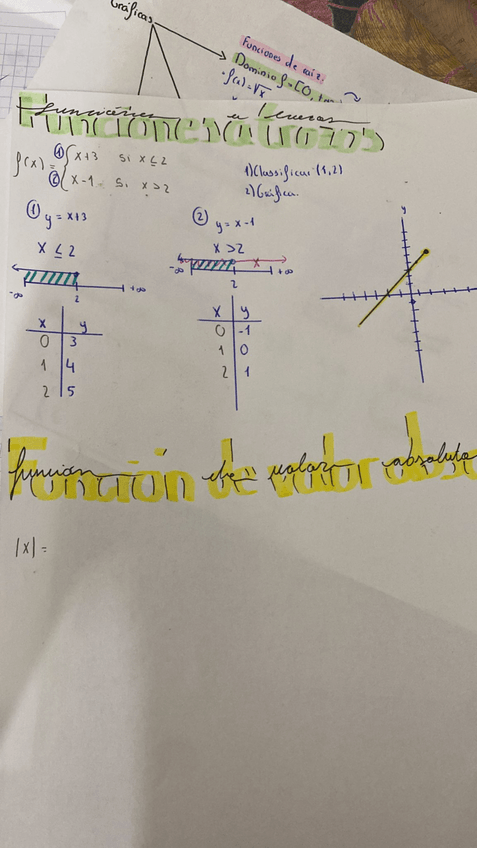 Gráficas
Funciones de raiz.
Dominio f = [0, +∞)
· f(x) = √x
Funciones a trozos
f(x) = { ① x+3 si x ≤ 2
② x-1 si x > 2
1) Classificar (1,2)
2) Gráfica.
① y = x+3
x ≤ 2
-∞ 2 +∞
x y
0 3
1 4
2 5
② y = x-1
x > 2
-∞ x +∞
2
x y
0 -1
1 0
2 1
y
Función de valor absoluto
|x| =